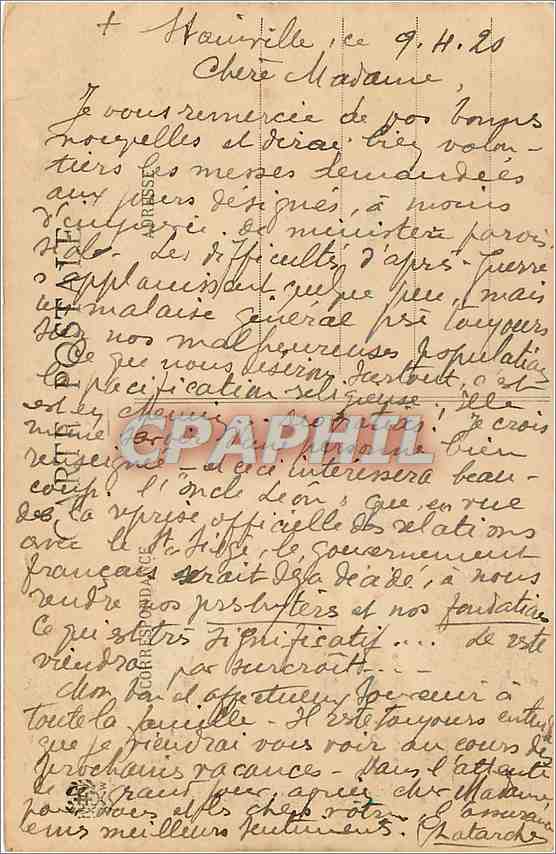 + Stainville, ce 9.4.20
Chère Madame,
Je vous remercie de vos bonnes
nouvelles et dirai bien volon-
tiers les messes demandées
aux jours désignés, à moins
d'imprévu de ministère parois
sial. Les difficultés d'après-guerre
s'applanissent quelque peu, mais
un malaise général pèse toujours
sur nos malheureuses populations
Ce que nous désirons surtout, c'est
la pacification religieuse; elle
est en chemin Je crois
même personne bien
renseignée - et ceci intéressera beau-
coup l'oncle Léon, que, en vue
de la reprise officielle des relations
avec le St Siège, le gouvernement
français serait déjà décidé, à nous
rendre nos presbytères et nos fondations
Ce qui est très significatif.... Le reste
viendra par surcroît....
Mon bon et affectueux souvenir à
toute la famille - Il reste toujours entendu
que je viendrai vous voir au cours des
prochaines vacances - Dans l'attente
de grand jour, agréez chère Madame,
pour vous et les chers vôtres, l'assurance
de mes meilleurs sentiments.
CARTE POSTALE
CORRESPONDANCE
ADRESSE
CPAPHIL